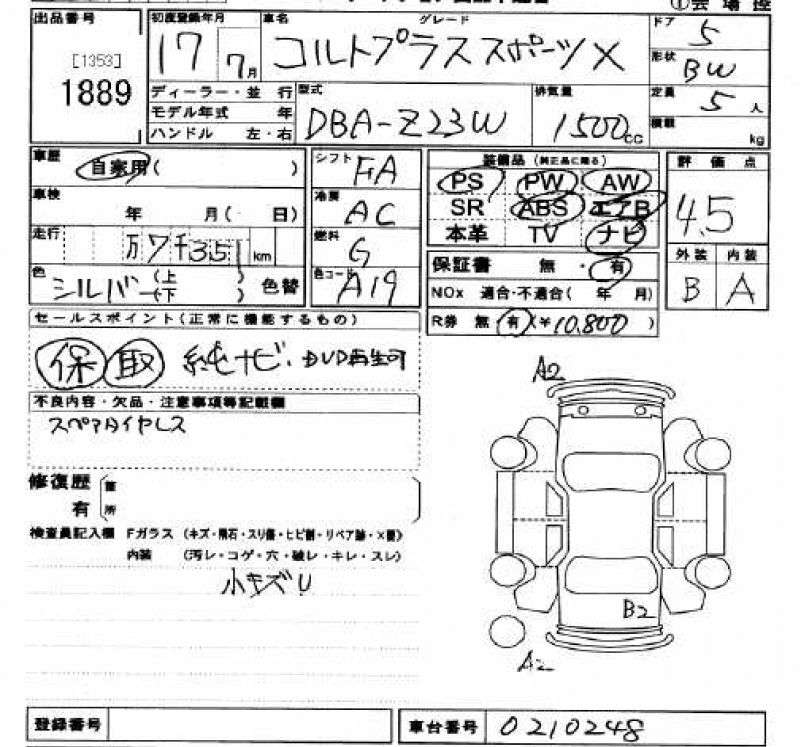 ①会場控
出品番号 初度登録年月 車名 グレード ドア 5
[1353] 17 7月 コルトプラススポーツX 形状 BW
1889 ディーラー・並行 型式 排気量 定員 5人
モデル年式 年 DBA-Z23W 1500cc 積載 kg
ハンドル 左・右
車歴 自家用( ) シフト FA 装備品 (純正品に限る) 評価点
車検 年 月( 日) 冷房 AC PS PW AW 4.5
SR ABS エアB
走行 万7千351km 燃料 G 本革 TV ナビ
外装 内装
色 シルバー(上 下) 色替 色コード A19 保証書 無・有 B A
NOx 適合・不適合( 年 月)
R券 無 有(¥10,800)
セールスポイント(正常に機能するもの)
保 取 純ナビ・DVD再生可
A2
不良内容・欠品・注意事項等記載欄
スペアタイヤレス
修復歴 箇
有 所
検査員記入欄 Fガラス (キズ・飛石・スリ傷・ヒビ割・リペア跡・×要)
内装 (汚レ・コゲ・穴・破レ・キレ・スレ)
小キズU
B2
A2
登録番号 車台番号 0210248